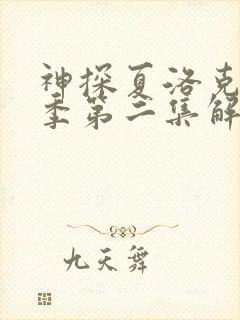 神探夏洛克
季第二集解
九天舞